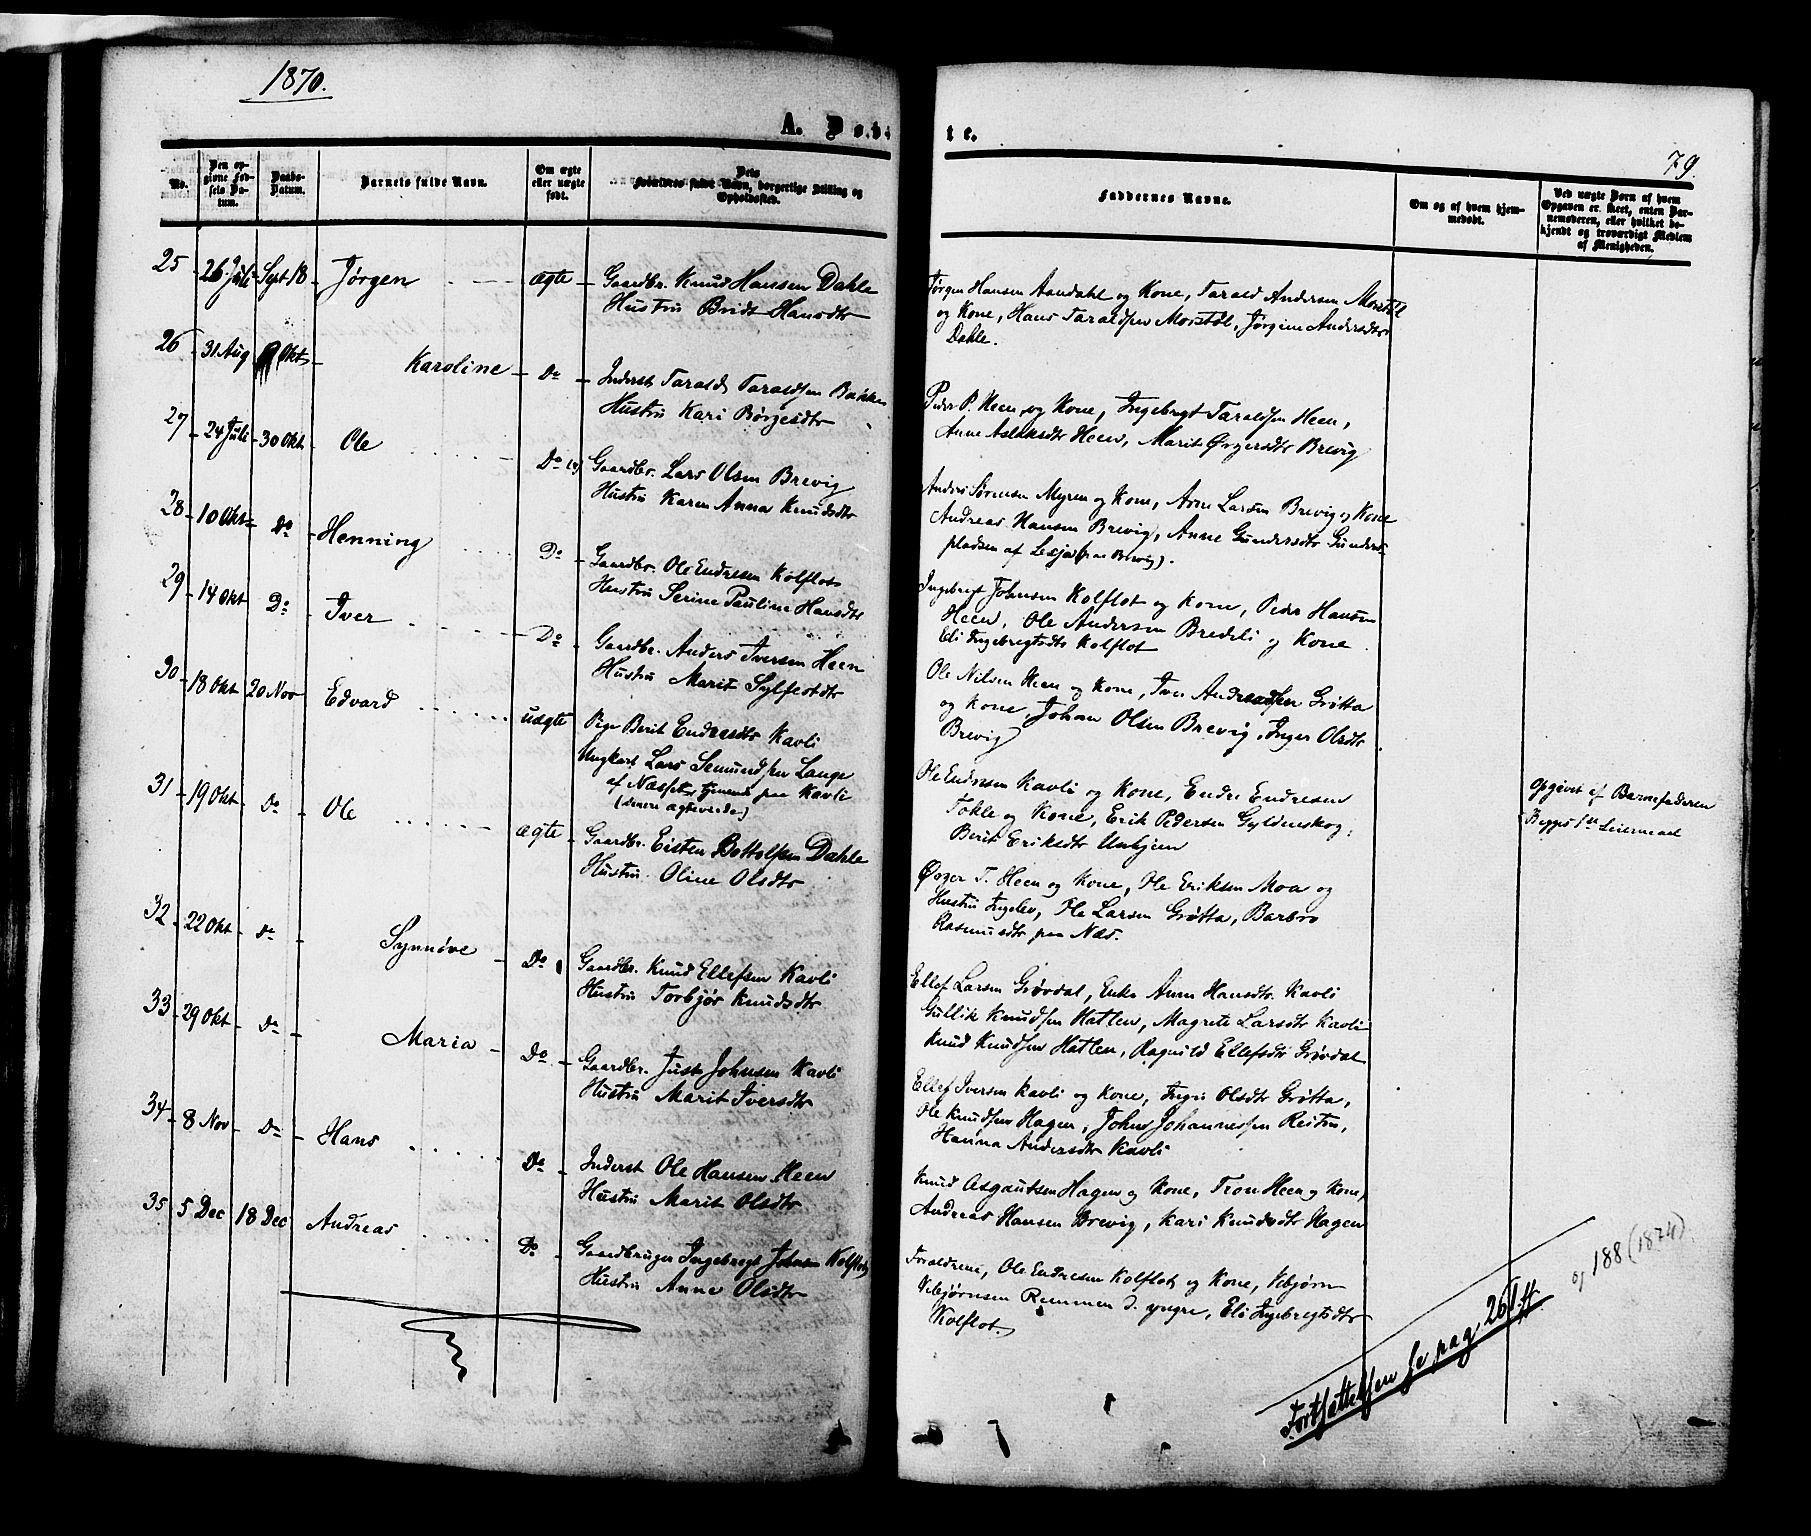 1870.
A. Døb-
te.
79.
No.
Den op-
givne Fød-
sels Da-
tum.
Daabs-
Datum.
Barnets fulde Navn.
Om ægte
eller uægte
født.
Dets
Forældres fulde Navn, borgerlige Stilling og
Opholdssted.
Faddernes Navne.
Om og af hvem hjem-
medøbt.
Ved uægte Børn af hvem
Opgaven er skeet, enten Bar-
nemoderen, eller hvilket be-
kjendt og troværdigt Medlem
af Menigheden.
25 26 Juli Sept 18 Jørgen ægte Gaardbr. Knud Hansen Dahle
Hustru Bridt Hansdtr
Jørgen Hansen Aandahl og Kone, Tarald Andersen Morstøl
og Kone, Hans Taraldsen Morstøl, Jørgine Andersdtr
Dahle.
26 31 Aug Okt Karoline Do Inderst Tarald Taraldsen Bakken
Hustru Kari Børgesdtr
Peder P. Heen og Kone, Ingebregt Taraldsen Heen,
Anne Aslaksdtr Heen, Marit Ørgersdtr Brevig
27 24 Juli 30 Okt Ole Do Gaardbr. Lars Olsen Brevig
Hustru Karen Anna Knudsdtr
Andres Sørensen Myren og Kone, Arne Larsen Brevig og Kone
Andreas Hansen Brevig, Anne Gundersdtr Gunders
pladsen af Lesja (paa Brevig).
28 10 Okt Do Henning Do Gaardbr. Ole Endresen Kolflot
Hustru Serine Pauline Hansdtr
Ingebregt Johnsen Kolflot og Kone, Peder Hansen
Heen, Ole Andersen Bredeli og Kone
Eli Ingebregtsdtr Kolflot
29 14 Okt Do Iver Do Gaardbr. Anders Iversen Heen
Hustru Marit Sylfestdtr
Ole Nilsen Heen og Kone, Iver Andreassen Grøtta
og Kone, Johan Olsen Brevig, Inger Olsdtr
Brevig
30 18 Okt 20 Nov Edvard uægte Pige Berit Endresdtr Kavli
Ungkarl Lars Semundsen Lange
af Næsset tjenende paa Kavli
(senere ægteviede)
Ole Endresen Kavli og Kone, Endre Endresen
Tokle og Kone, Erik Pedersen Gyldenskog,
Berit Eriksdtr Unhjem
Opgivet af Barnefaderen
Begges 1ste Leiermaal
31 19 Okt Do Ole ægte Gaardbr. Eisten Bottolfsen Dahle
Hustru Oline Olsdtr
Ørger T. Heen og Kone, Ole Eriksen Moa og
Hustru Ingelev, Ole Larsen Grøtta, Barbro
Rasmusdtr paa Næs.
32 22 Okt Do Synnøve Do Gaardbr. Knud Ellefsen Kavli
Hustru Torbjør Knudsdtr
Ellef Larsen Grøvdal, Enke Anne Hansdtr Kavli
Gullik Knudsen Hatlen, Magrete Larsdtr Kavli
Knud Knudsen Hatlen, Ragnild Ellefsdtr Grøvdal
33 29 Okt Do Maria Do Gaardbr. Just Johnsen Kavli
Hustru Marit Iversdtr
Ellef Iversen Kavli og Kone, Ingri Olsdtr Grøtta,
Ole Knudsen Hagen, Johns Johannessen Reiten,
Hanna Andersdtr Kavli
34 8 Nov Do Hans Do Inderst Ole Hansen Heen
Hustru Marit Olsdtr
Knud Asgautsen Hagen og Kone, Tron Heen og Kone,
Andreas Hansen Brevig, Kari Knudsdtr Hagen
35 5 Dec 18 Dec Andreas Do Gaardbruger Ingebregt Johnsen Kolflot
Hustru Anne Olsdtr
Forældrene, Ole Endresen Kolflot og Kone, Vebjørn
Vebjørnsen Remmen d. yngre, Eli Ingebregtsdtr
Kolflot.
Fortsættelsen se pag 261 ff.
og 188 (1874)